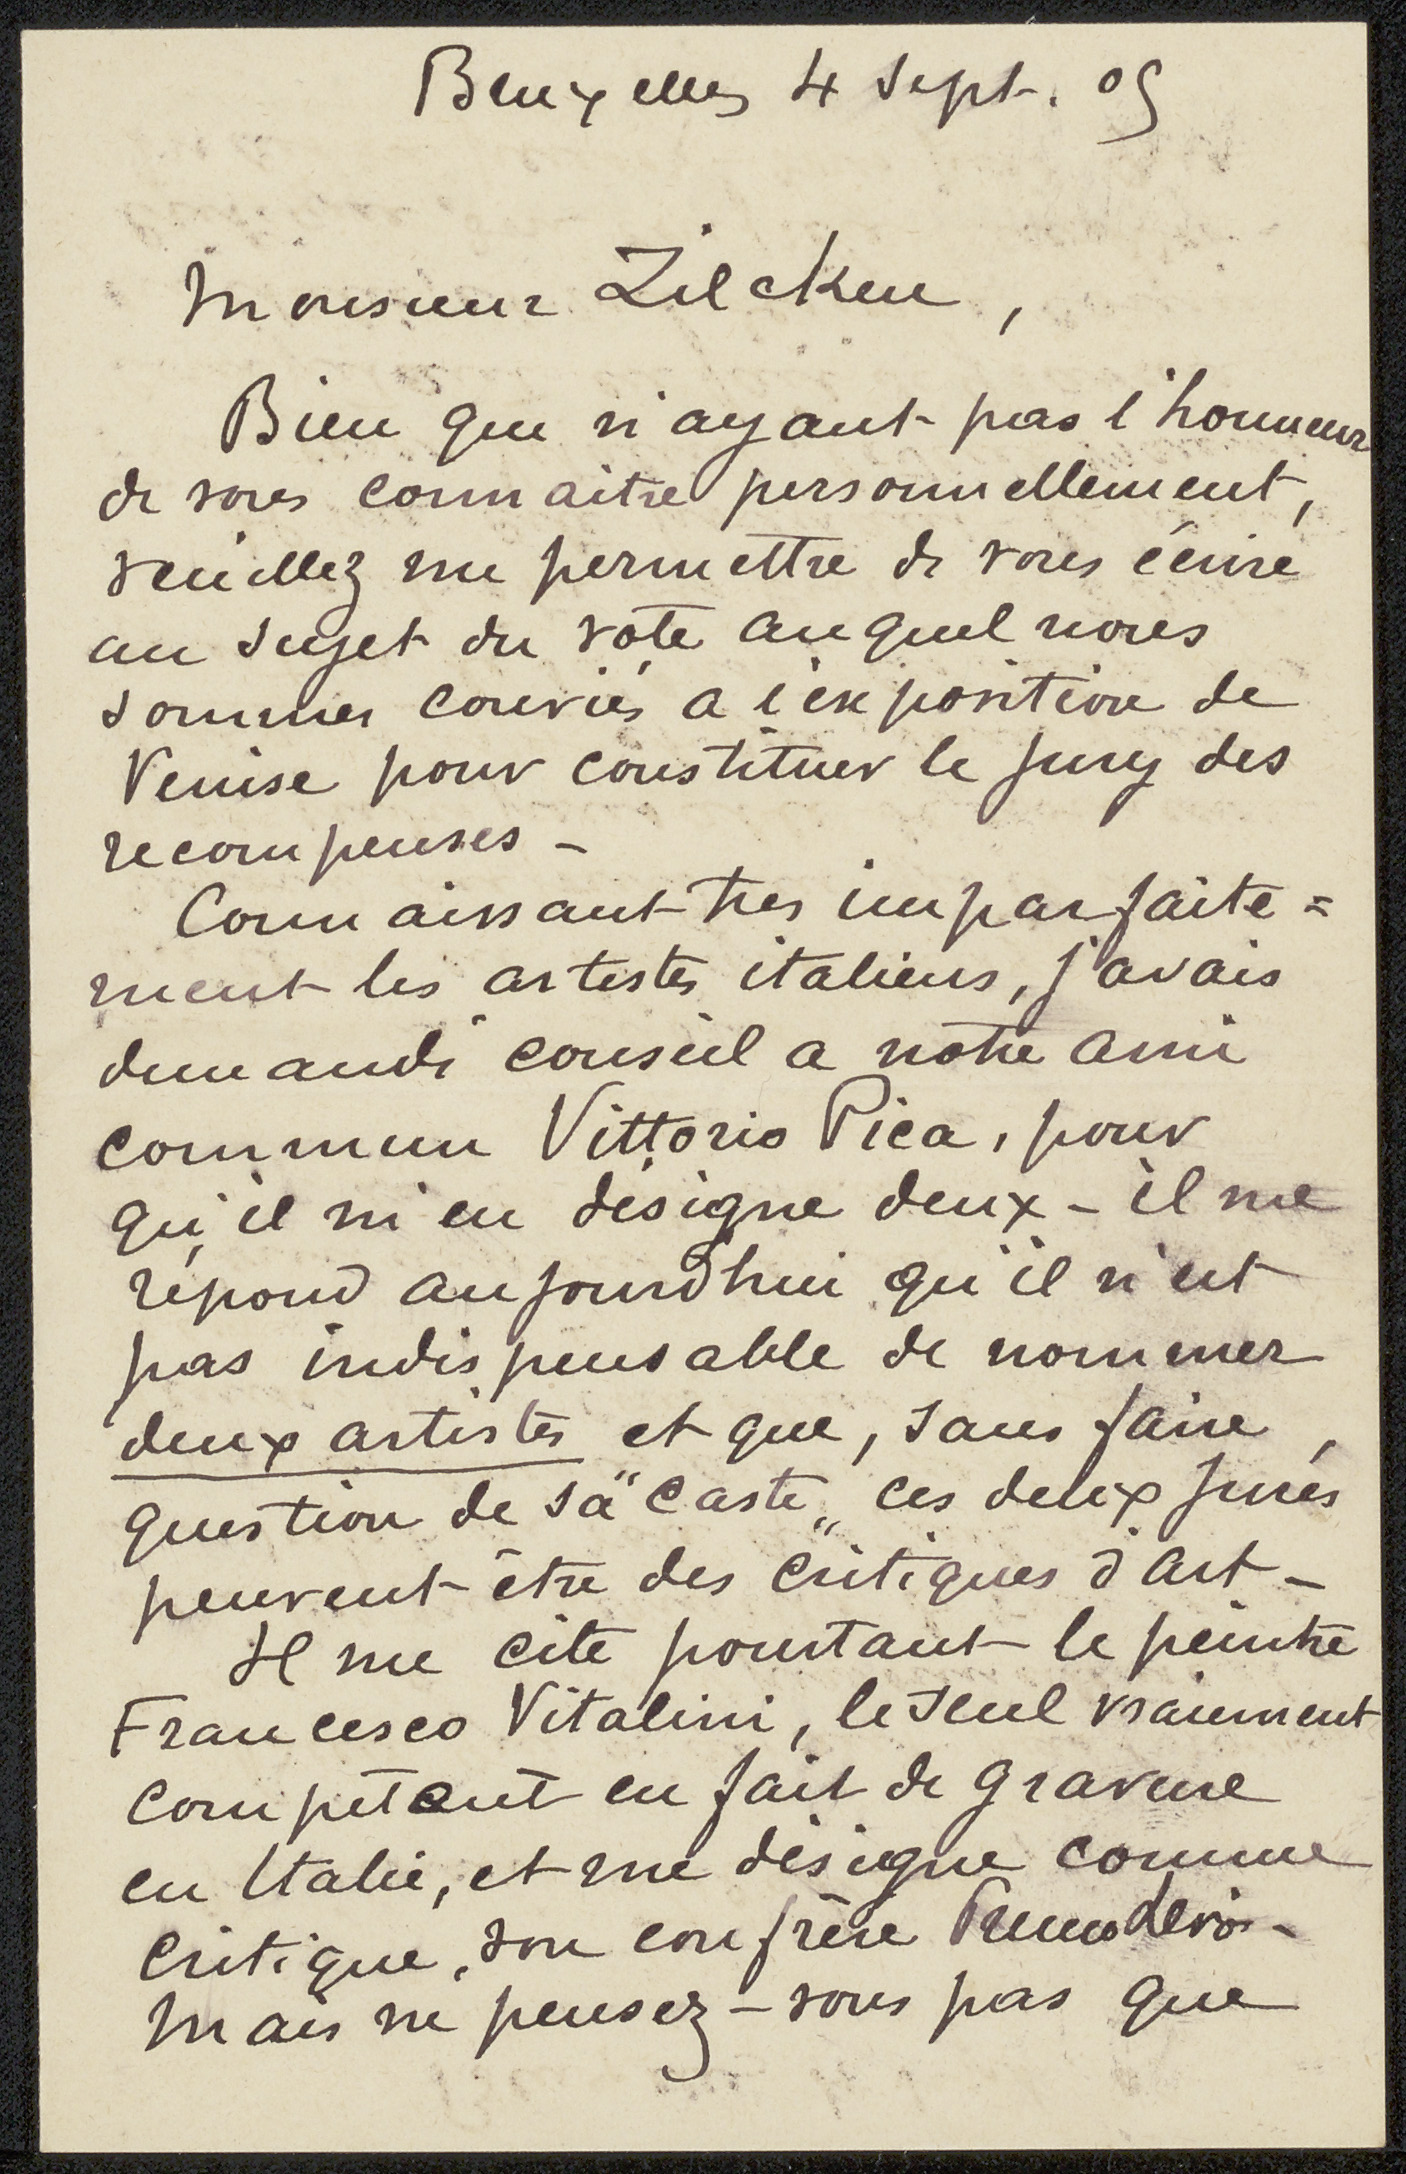 Bruxelles 4 Sept. 05
Monsieur Zilcken,
Bien que n'ayant pas l'honneur
de vous connaitre personnellement,
veuillez me permettre de vous écrire
au sujet du vote auquel nous
sommes conviés a l'exposition de
Venise pour constituer le jury des
recompenses -
Connaissant tres imparfaite=
ment les artistes italiens, j'avais
demandé conseil a notre ami
commun Vittorio Pica, pour
qu'il m'en désigne deux - il me
répond aujourd'hui qu'il n'est
pas indispensable de nommer
deux artistes et que, sans faire
question de sa "caste„ ces deux jurés
peuvent être des critiques d'art -
Il me cite pourtant le peintre
Francesco Vitalini, le seul vraiment
compétent en fait de gravure
en Italie, et me désigne comme
critique, son confrère Primo Levi -
Mais ne pensez-vous pas que